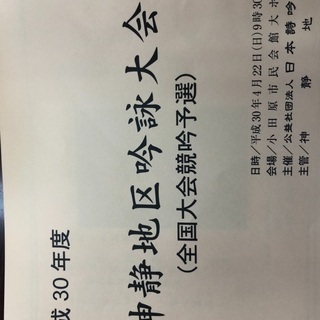 成 30 年度
神静地区吟詠大会
(全国大会競吟予選)
日時/平成30年4月22日(日)9時30
会場/小田原市民会館大ホ
主催/公益社団法人 日本詩吟
主管/神 静 地